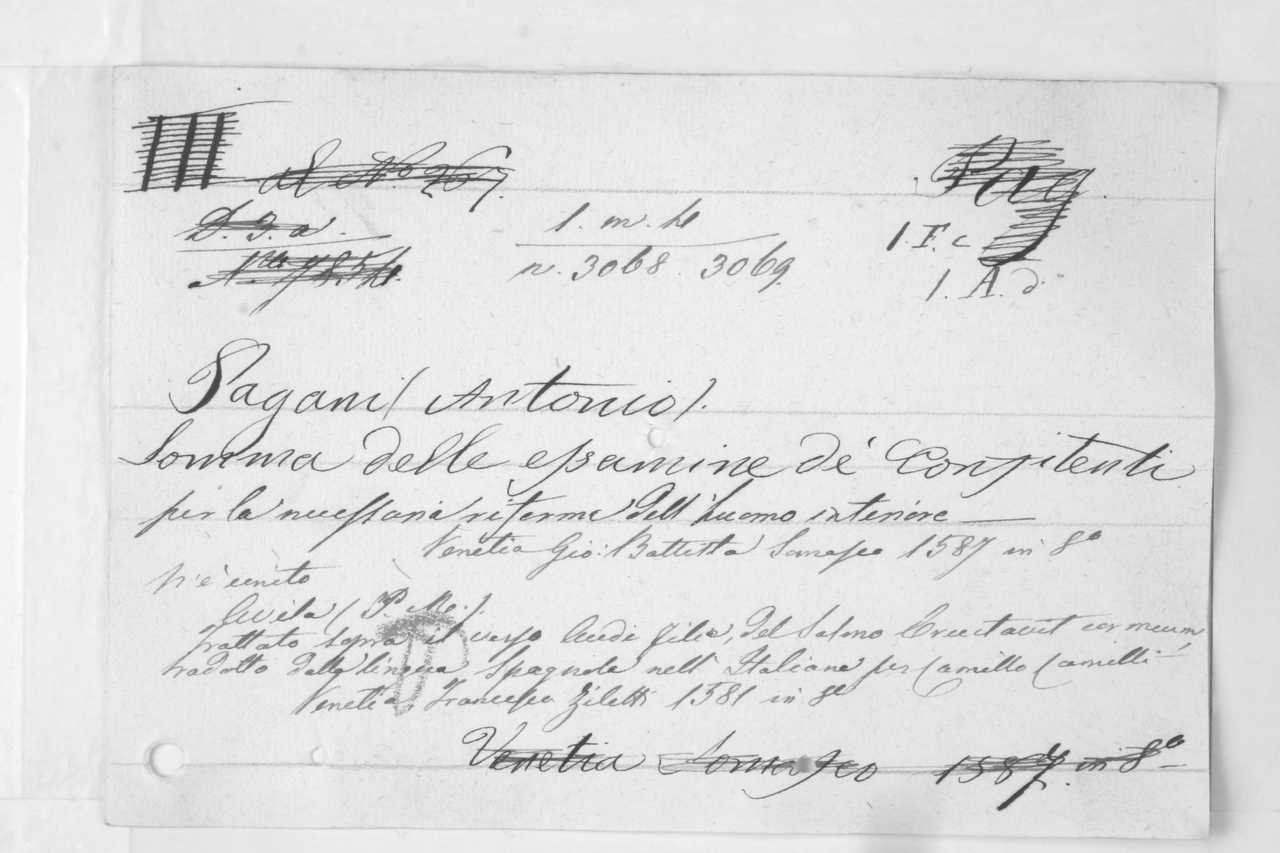 al No. 267.
Pag.
D. g. a.
1. m. h
1. F. c
n. 3068. 3069.
1. A. d
Pagani (Antonio).
Somma delle essamine de' Confitenti
per la necessaria riforma dell' huomo interiore —
Venetia Gio: Battista Somasco 1587 in 8º
N'è unito
Avila (P. M.)
Trattato sopra il verso Audi filia, del Salmo Eructavit cor meum
tradotto dalla lingua Spagnola nell' Italiana per Camillo Camilli
Venetia, Francesco Ziletti 1581 in 8º
Venetia Somasco 1587. in 8º